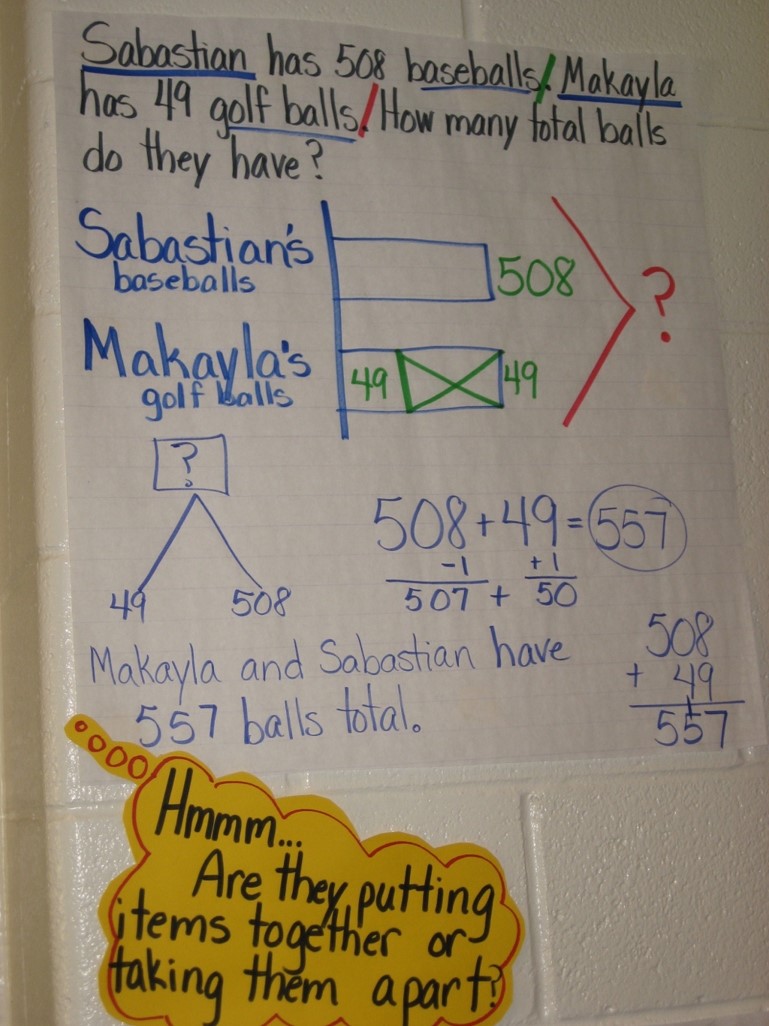 Sabastian has 508 baseballs. Makayla
has 49 golf balls. How many total balls
do they have?
Sabastian's
baseballs
508
?
Makayla's
golf balls
49
49
?
49 508
508+49=557
-1 +1
507 + 50
Makayla and Sabastian have
557 balls total.
508
+ 49
1
557
Hmmm...
Are they putting
items together or
taking them apart?